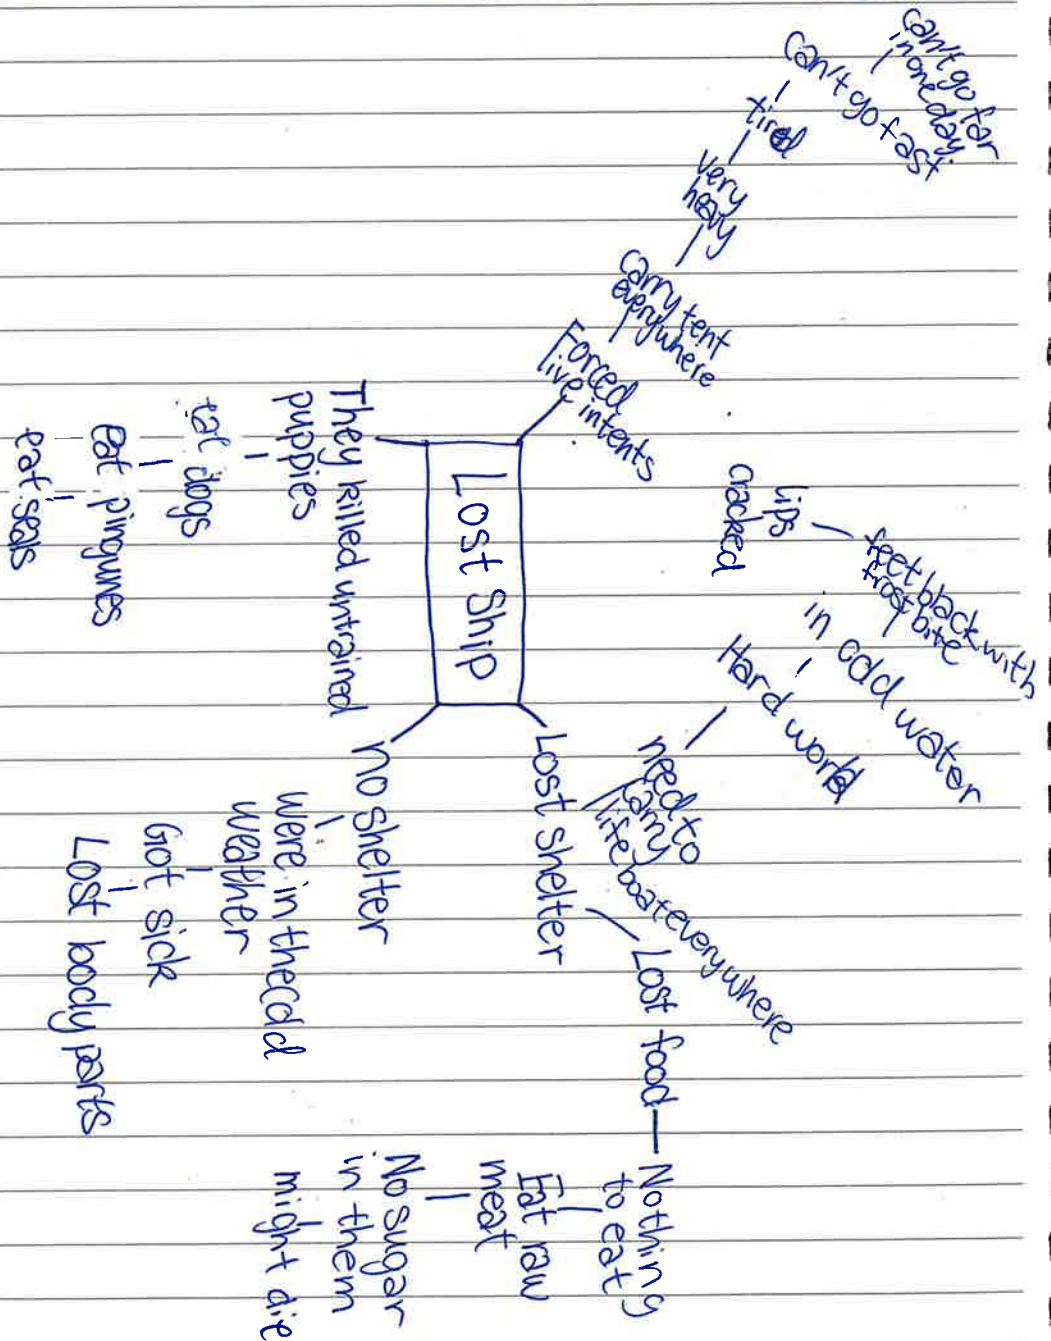 can't go far
in one day
can't go fast
tired
very
heavy
carry tent
everywhere
Forced
live in tents
Lost Ship
They killed untrained
puppies
eat dogs
eat pingunes
eat seals
no shelter
were in the cold
weather
Got sick
Lost body parts
Lost shelter
need to
carry
life boat everywhere
Hard world
in cold water
feet black with
frost bite
Lips
cracked
Lost food
Nothing
to eat
Eat raw
meat
No sugar
in them
might die